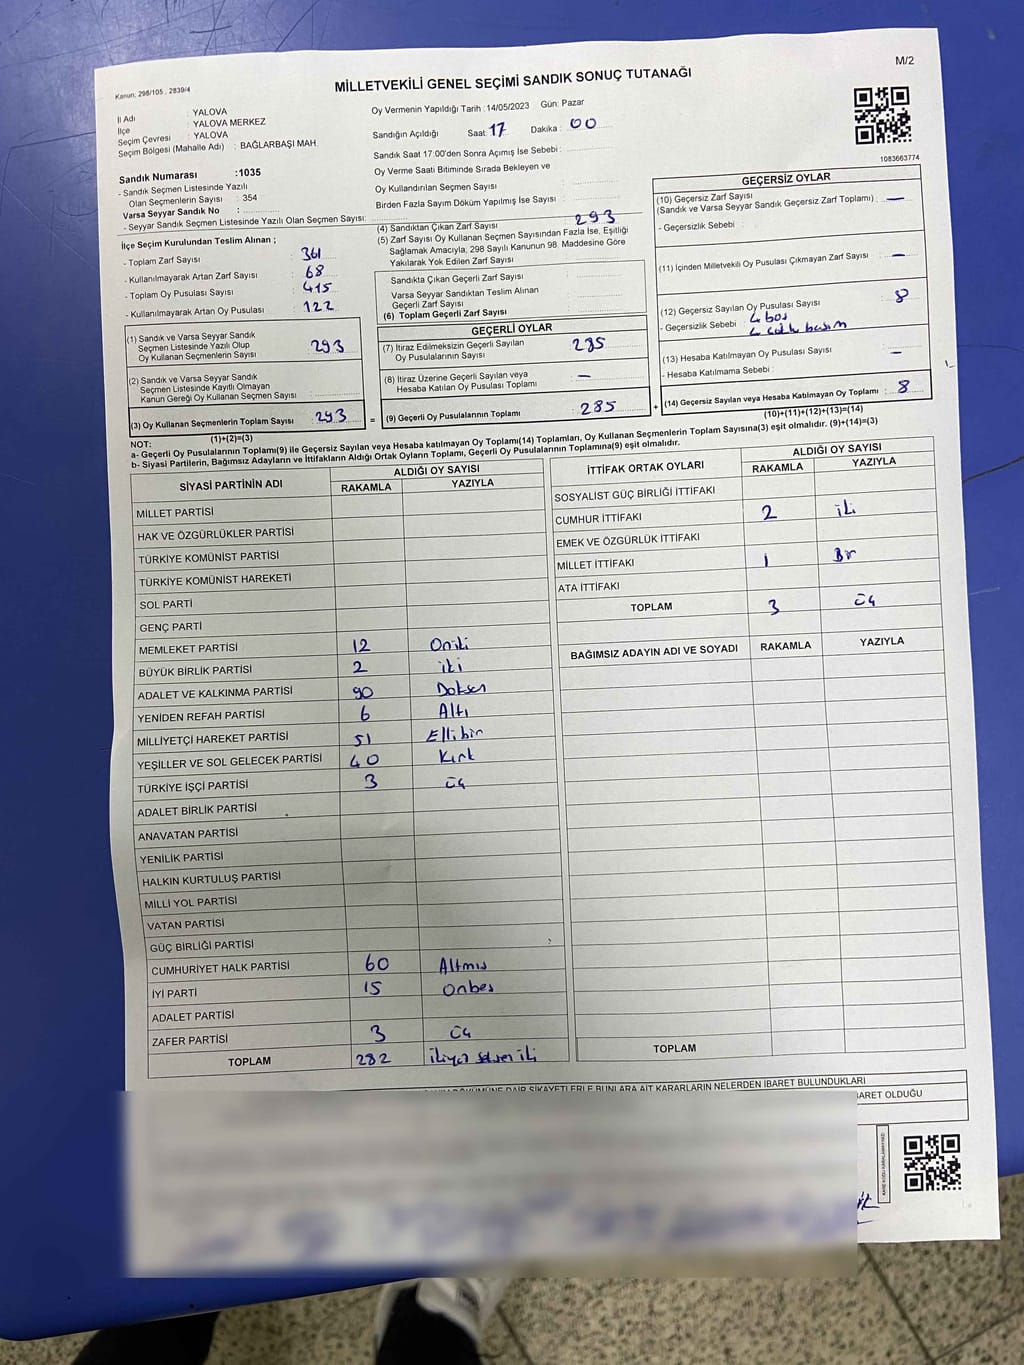 M/2
Kanun: 298/105 , 2839/4
MİLLETVEKİLİ GENEL SEÇİMİ SANDIK SONUÇ TUTANAĞI
İl Adı : YALOVA
İlçe : YALOVA MERKEZ
Seçim Çevresi : YALOVA
Seçim Bölgesi (Mahalle Adı) : BAĞLARBAŞI MAH.
Oy Vermenin Yapıldığı Tarih :14/05/2023 Gün: Pazar
Sandığın Açıldığı Saat: 17 Dakika : 00
Sandık Saat 17:00'den Sonra Açımış İse Sebebi :
Oy Verme Saati Bitiminde Sırada Bekleyen ve
Oy Kullandırılan Seçmen Sayısı :
Birden Fazla Sayım Döküm Yapılmış İse Sayısı :
1083663774
Sandık Numarası :1035
- Sandık Seçmen Listesinde Yazılı
Olan Seçmenlerin Sayısı : 354
Varsa Seyyar Sandık No :
- Seyyar Sandık Seçmen Listesinde Yazılı Olan Seçmen Sayısı:
İlçe Seçim Kurulundan Teslim Alınan ;
- Toplam Zarf Sayısı : 361
- Kullanılmayarak Artan Zarf Sayısı : 68
- Toplam Oy Pusulası Sayısı : 415
- Kullanılmayarak Artan Oy Pusulası : 122
(1) Sandık ve Varsa Seyyar Sandık
Seçmen Listesinde Yazılı Olup
Oy Kullanan Seçmenlerin Sayısı : 293
(2) Sandık ve Varsa Seyyar Sandık
Seçmen Listesinde Kayıtlı Olmayan
Kanun Gereği Oy Kullanan Seçmen Sayısı :
(3) Oy Kullanan Seçmenlerin Toplam Sayısı : 293
(1)+(2)=(3)
(4) Sandıktan Çıkan Zarf Sayısı : 293
(5) Zarf Sayısı Oy Kullanan Seçmen Sayısından Fazla İse, Eşitliği
Sağlamak Amacıyla, 298 Sayılı Kanunun 98. Maddesine Göre
Yakılarak Yok Edilen Zarf Sayısı :
Sandıkta Çıkan Geçerli Zarf Sayısı :
Varsa Seyyar Sandıktan Teslim Alınan
Geçerli Zarf Sayısı :
(6) Toplam Geçerli Zarf Sayısı :
GEÇERLİ OYLAR
(7) İtiraz Edilmeksizin Geçerli Sayılan
Oy Pusulalarının Sayısı : 285
(8) İtiraz Üzerine Geçerli Sayılan veya
Hesaba Katılan Oy Pusulası Toplamı : —
= (9) Geçerli Oy Pusulalarının Toplamı : 285 +
GEÇERSİZ OYLAR
(10) Geçersiz Zarf Sayısı
(Sandık ve Varsa Seyyar Sandık Geçersiz Zarf Toplamı) : —
- Geçersizlik Sebebi :
(11) İçinden Milletvekili Oy Pusulası Çıkmayan Zarf Sayısı : —
(12) Geçersiz Sayılan Oy Pusulası Sayısı : 8
- Geçersizlik Sebebi : 4 boş
(13) Hesaba Katılmayan Oy Pusulası Sayısı : —
- Hesaba Katılmama Sebebi :
(14) Geçersiz Sayılan veya Hesaba Katılmayan Oy Toplamı : 8
(10)+(11)+(12)+(13)=(14)
NOT:
a- Geçerli Oy Pusulalarının Toplamı(9) ile Geçersiz Sayılan veya Hesaba katılmayan Oy Toplamı(14) Toplamları, Oy Kullanan Seçmenlerin Toplam Sayısına(3) eşit olmalıdır. (9)+(14)=(3)
b- Siyasi Partilerin, Bağımsız Adayların ve İttifakların Aldığı Ortak Oyların Toplamı, Geçerli Oy Pusulalarının Toplamına(9) eşit olmalıdır.
SİYASİ PARTİNİN ADI ALDIĞI OY SAYISI
RAKAMLA YAZIYLA
MİLLET PARTİSİ
HAK VE ÖZGÜRLÜKLER PARTİSİ
TÜRKİYE KOMÜNİST PARTİSİ
TÜRKİYE KOMÜNİST HAREKETİ
SOL PARTİ
GENÇ PARTİ
MEMLEKET PARTİSİ 12 Oniki
BÜYÜK BİRLİK PARTİSİ 2 iki
ADALET VE KALKINMA PARTİSİ 90 Doksan
YENİDEN REFAH PARTİSİ 6 Altı
MİLLİYETÇİ HAREKET PARTİSİ 51 Ellibir
YEŞİLLER VE SOL GELECEK PARTİSİ 40 Kırk
TÜRKİYE İŞÇİ PARTİSİ 3 üç
ADALET BİRLİK PARTİSİ
ANAVATAN PARTİSİ
YENİLİK PARTİSİ
HALKIN KURTULUŞ PARTİSİ
MİLLİ YOL PARTİSİ
VATAN PARTİSİ
GÜÇ BİRLİĞİ PARTİSİ
CUMHURİYET HALK PARTİSİ 60 Altmış
İYİ PARTİ 15 Onbeş
ADALET PARTİSİ
ZAFER PARTİSİ 3 üç
TOPLAM 282 ikiyüz seksen iki
İTTİFAK ORTAK OYLARI ALDIĞI OY SAYISI
RAKAMLA YAZIYLA
SOSYALİST GÜÇ BİRLİĞİ İTTİFAKI
CUMHUR İTTİFAKI 2 iki
EMEK VE ÖZGÜRLÜK İTTİFAKI
MİLLET İTTİFAKI 1 Bir
ATA İTTİFAKI
TOPLAM 3 üç
BAĞIMSIZ ADAYIN ADI VE SOYADI RAKAMLA YAZIYLA
TOPLAM
DÖKÜMÜNE DAİR ŞİKAYETLERLE BUNLARA AİT KARARLARIN NELERDEN İBARET BULUNDUKLARI
BARET OLDUĞU